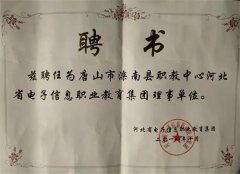 聘书
兹聘任为唐山市滦南县职教中心河北
省电子信息职业教育集团理事单位。
河北省电子信息职业教育集团